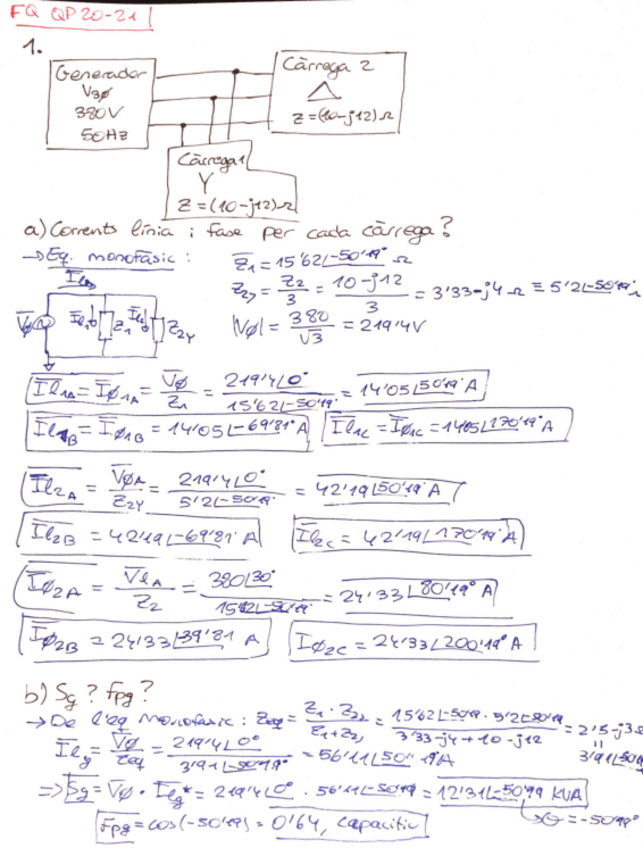 FQ QP 20-21
1.
Generador
V3ø
380V
50Hz
Càrrega 2
△
Z=(10-j12)Ω
Càrrega 1
Y
Z=(10-j12)Ω
a) Corrents línia i fase per cada càrrega?
→ Eq. monofàsic:
Z̅1 = 15'62∠-50'19° Ω
Z2y = Z2/3 = (10-j12)/3 = 3'33-j4 Ω ≡ 5'2∠-50'19° Ω
|Vø| = 380/√3 = 219'4V
I̅lg
V̅ø
I̅l1
Z1
Z2Y
I̅l1A = I̅ø1A = V̅ø/Z1 = 219'4∠0°/15'62∠-50'19° = 14'05∠50'19° A
I̅l1B = I̅ø1B = 14'05∠-69'81° A
I̅l1C = I̅ø1C = 14'05∠170'19° A
I̅l2A = V̅øA/Z2Y = 219'4∠0°/5'2∠-50'19° = 42'19∠50'19° A
I̅l2B = 42'19∠-69'81° A
I̅l2C = 42'19∠170'19° A
I̅ø2A = V̅lA/Z2 = 380∠30°/15'62∠-50'19° = 24'33∠80'19° A
I̅ø2B = 24'33∠39'81 A
Iø2C = 24'33∠200'19° A
b) Sg? Fpg?
→ De l'eq monofàsic: Zeq = Z1·Z2y/Z1+Z2y = 15'62∠-50'19·5'2∠-50'19/3'33-j4+10-j12 = 2'5-j3Ω
=
3'91∠-50'19
I̅lg = V̅ø/Zeq = 219'4∠0°/3'91∠-50'19° = 56'11∠50'19° A
⇒ S̅g = V̅ø·I̅lg* = 219'4∠0°·56'11∠-50'19 = 12'31∠-50'19 KVA
↳ θ = -50'19°
Fpg = cos(-50'19) = 0'64, capacitiu